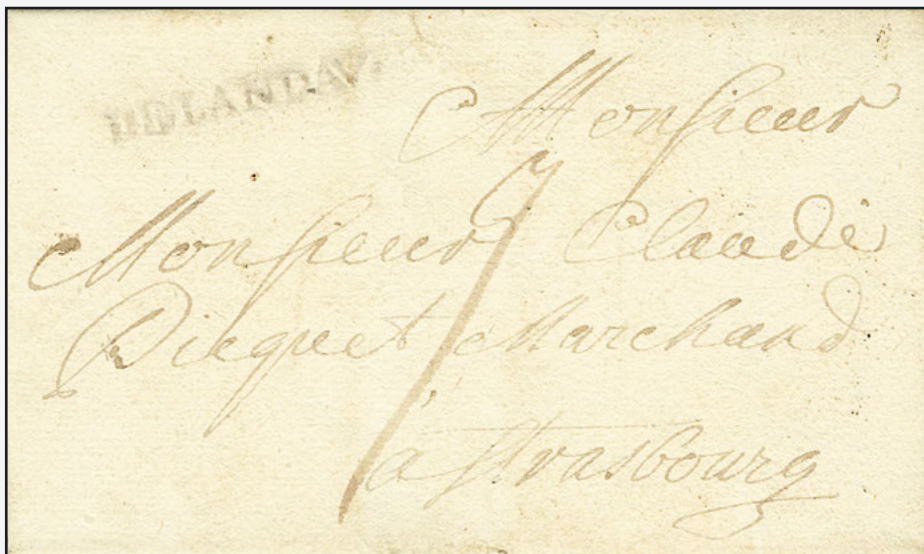 DELANDAV.
Monsieur
7
Monsieur Claude
Picquet Marchand
à Strasbourg